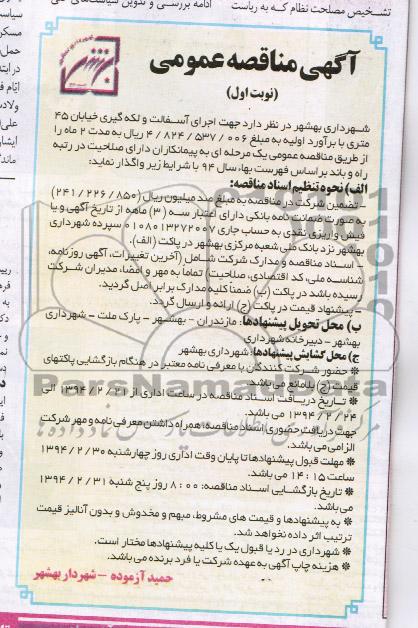 تشخیص مصلحت نظام که به ریاست
ادامه بررسی و تدوین سیاست‌های
آگهی مناقصه عمومی
(نوبت اول)
شهرداری بهشهر در نظر دارد جهت اجرای آسفالت و لکه گیری خیابان ۴۵
متری با برآورد اولیه به مبلغ ۴/۸۲۴/۵۳۷/۰۰۶ ریال به مدت ۲ ماه را
از طریق مناقصه عمومی یک مرحله ای به پیمانکاران دارای صلاحیت در رتبه
راه و باند براساس فهرست بهاء سال ۹۴ با شرایط زیر واگذار نماید:
الف) نحوه تنظیم اسناد مناقصه:
- تضمین شرکت در مناقصه به مبلغ صد میلیون ریال (۲۴۱/۲۲۶/۸۵۰)
به صورت ضمانت نامه بانکی دارای اعتبار سه (۳) ماهه از تاریخ آگهی و یا
فیش واریزی نقدی به حساب جاری ۰۱۰۸۰۱۳۲۷۲۰۰۷ سپرده شهرداری
بهشهر نزد بانک ملی شعبه مرکزی بهشهر در پاکت (الف).
- اسناد مناقصه و مدارک شرکت شامل (آخرین تغییرات، آگهی روزنامه،
شناسه ملی، کد اقتصادی، صلاحیت) تماما به مهر و امضاء مدیران شرکت
رسیده باشد در پاکت (ب) ضمناً کلیه مدارک برابر اصل گردید.
- پیشنهاد قیمت در پاکت (ج) ارائه و ارسال گردد.
ب) محل تحویل پیشنهادها: مازندران - بهشهر - پارک ملت - شهرداری
بهشهر - دبیرخانه شهرداری
ج) محل گشایش پیشنهادها: شهرداری بهشهر
* حضور شرکت کنندگان با معرفی نامه معتبر در هنگام بازگشایی پاکتهای
قیمت (ج) بلامانع می باشد.
* تاریخ دریافت اسناد مناقصه در ساعت اداری از ۱۳۹۴/۲/۲۱ الی
۱۳۹۴/۲/۲۴ می باشد.
جهت دریافت حضوری اسناد مناقصه، همراه داشتن معرفی نامه و مهر شرکت
الزامی می باشد.
* مهلت قبول پیشنهادها تا پایان وقت اداری روز چهارشنبه ۱۳۹۴/۲/۳۰
ساعت ۱۴:۱۵ می باشد.
* تاریخ بازگشایی اسناد مناقصه: ۸:۰۰ روز پنج شنبه ۱۳۹۴/۲/۳۱ می
باشد.
* به پیشنهادها و قیمت های مشروط، مبهم و مخدوش و بدون آنالیز قیمت
ترتیب اثر داده نخواهد شد.
* شهرداری در رد یا قبول یک یا کلیه پیشنهادها مختار است.
* هزینه چاپ آگهی به عهده شرکت یا فرد برنده می باشد.
حمید آزموده - شهردار بهشهر